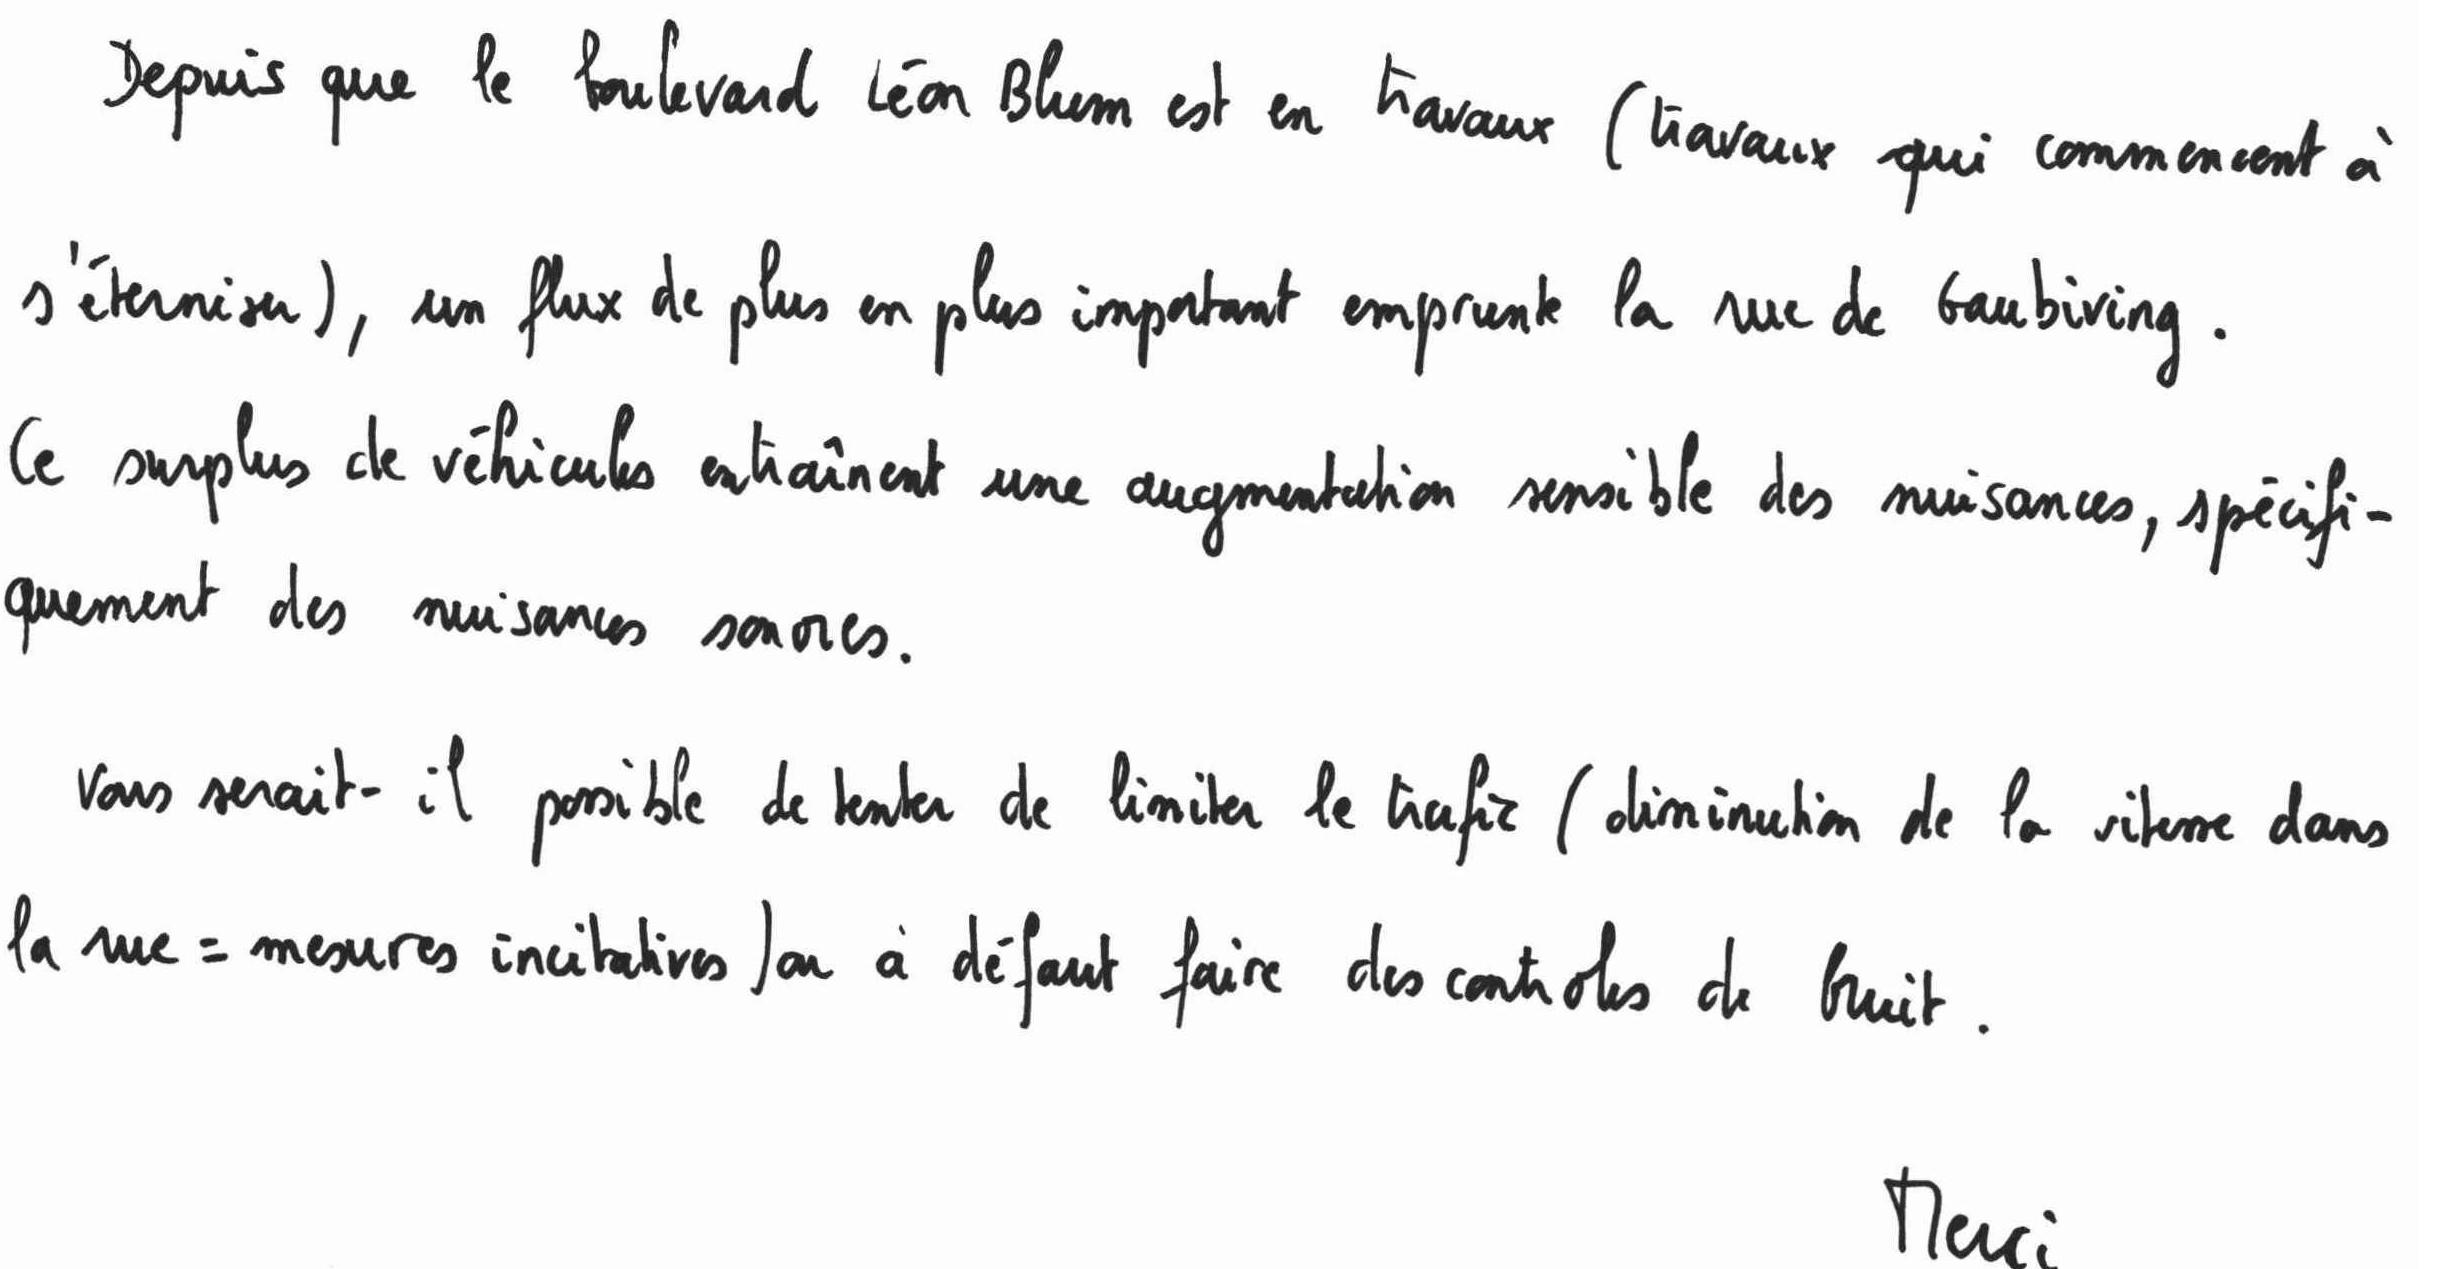 Depuis que le boulevard Léon Blum est en travaux (travaux qui commencent à
s'éterniser), un flux de plus en plus important emprunte la rue de Gaubiving.
Ce surplus de véhicules entraînent une augmentation sensible des nuisances, spécifi-
quement des nuisances sonores.
Vous serait-il possible de tenter de limiter le trafic (diminution de la vitesse dans
la rue = mesures incitatives) ou à défaut faire des controles de bruit.
Merci